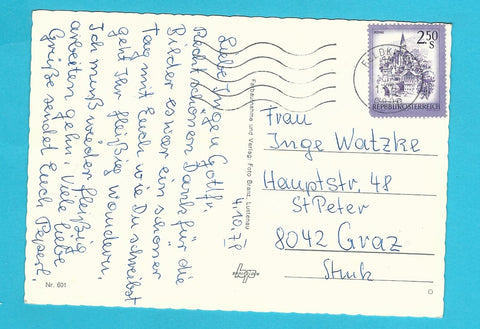 Liebe Inge u Gottfr.
4.10.78
Recht schönen Dank für die
Bilder es war ein schöner
Tag mit Euch wie Du schreibst
geht Ihr fleißig wandern.
Ich muß wieder fleißig
arbeiten gehn. Viele liebe
Grüße sendet Euch Pepperl.
Nr. 601
Farbaufnahme und Verlag: Foto Branz, Lustenau
2.50
S
REPUBLIK ÖSTERREICH
Frau
Inge Watzke
Hauptstr. 48
St Peter
8042 Graz
Stmk